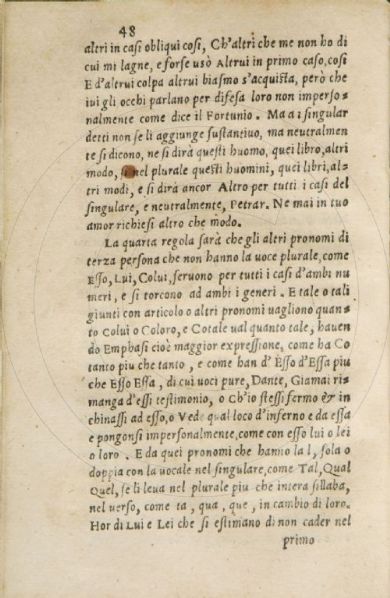 48
altri in casi obliqui cosi, Ch'altri che me non ho di
cui mi lagne, e forse usò Altrui in primo caso, così
E d'altrui colpa altrui biasmo s'acquista, però che
iui gli occhi parlano per difesa loro non imperso-
nalmente come dice il Fortunio. Ma a i singular
detti non se li aggiunge sustantiuo, ma neutralmen
te si dicono, ne si dirà questi huomo, quei libro, altri
modo, si nel plurale questi huomini, quei libri, al-
tri modi, e si dirà ancor Altro per tutti i casi del
singulare, e neutralmente, Petrar. Ne mai in tuo
amor richiesi altro che modo.
La quarta regola sarà che gli altri pronomi di
terza persona che non hanno la uoce plurale, come
Esso, Lui, Colui, seruono per tutti i casi d'ambi nu
meri, e si torcono ad ambi i generi. E tale o tali
giunti con articolo o altri pronomi uagliono quan-
to Colui o Coloro, e Cotale ual quanto tale, hauen
do Emphasi cioè maggior expressione, come ha Co
tanto piu che tanto, e come han d'Esso d'Essa piu
che Esso Essa, di cui uoci pure, Dante, Giamai ri-
manga d'essi testimonio, o Ch'io stessi fermo & in
chinassi ad esso, o Vede qual loco d'inferno e da essa
e pongonsi impersonalmente, come con esso lui o lei
o loro. E da quei pronomi che hanno la l, sola o
doppia con la uocale nel singulare, come Tal, Qual
Quel, se li leua nel plurale piu che intera sillaba,
nel uerso, come ta, qua, que, in cambio di loro.
Hor di Lui e Lei che si estimano di non cader nel
primo